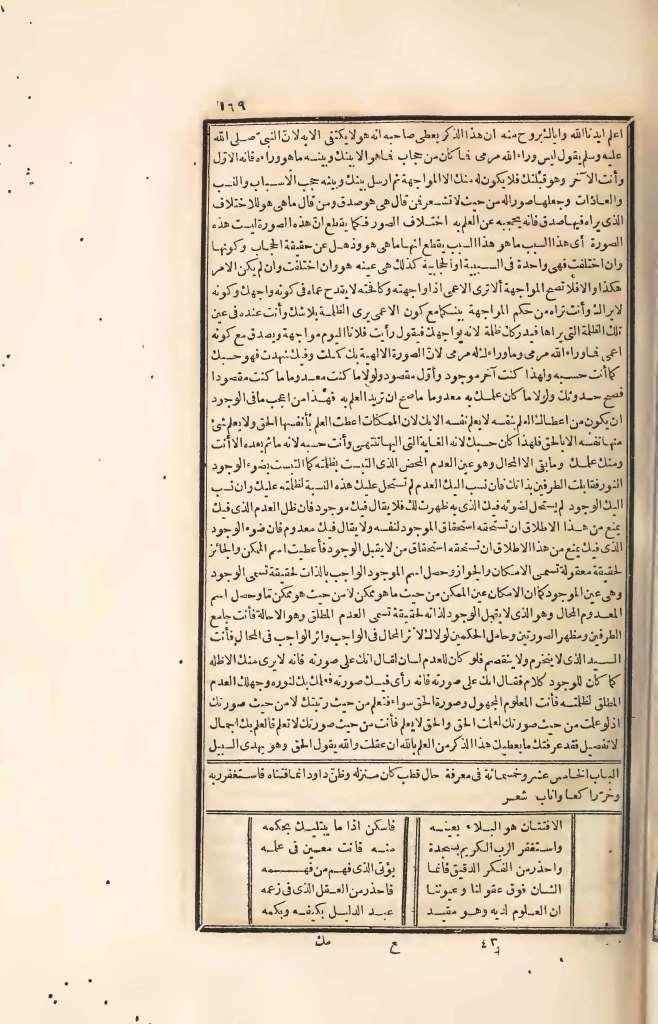 ١٦٩
اعلم ايدنا الله واياك بروح منه ان هذا الذكر يعطى صاحبه انه هو لا يكتفى الا به لان النبى صلى الله
عليه وسلم يقول ليس وراء الله مرمى فما كان من حجاب فما هو الا بينك وبينه ما هو وراءه فانه الاول
وأنت الآخر وهو قبلتك فلا يكون له منك الا المواجهة ثم ارسل بينك وبينه حجب الاسباب والنسب
والعادات وجعلها صوراله من حيث لا تشعر فمن قال هى هو صدق ومن قال ما هى هو للاختلاف
الذى يراه فيها صدق فانه يحجبه عن العلم به اختلاف الصور فكما يقطع ان هذه الصورة ليست هذه
الصورة أى هذا السبب ما هو هذا السبب يقطع انها ما هى هو وذهل عن حقيقة الحجاب وكونها
وان اختلفت فهى واحدة فى السببية او الحجابية كذلك هى عينه هو وان اختلفت وان لم يكن الامر
هكذا والا فلا تصح المواجهة ألا ترى الاعمى اذا واجهته وكافحته لا يقدح عماه فى كونه واجهك وكونه
لا يراك وأنت تراه من حكم المواجهة بينكما مع كون الاعمى يرى الظلمة بلا شك وأنت عنده فى عين
تلك الظلمة التى يراها فيدركك ظلمة لانه يواجهك فيقول رأيت فلانا اليوم مواجهة ويصدق مع كونه
اعمى فما وراء الله مرمى وما وراءك له مرمى لان الصورة الالهية بك كملت وفيك شهدت فهو حسبك
كما أنت حسبه ولهذا كنت آخر موجود وأول مقصود ولولا ما كنت معدوما ما كنت مقصودا
فصح حدوثك ولولا ما كان علمك به معدوما ما صح ان تريد العلم به فهذا من اعجب ما فى الوجود
ان يكون من اعطاك العلم بنفسه لا يعلم نفسه الا بك لان الممكنات اعطت العلم بأنفسها الحق ولا يعلم شئ
منها نفسه الا بالحق فلهذا كان حسبك لانه الغاية التى اليها تنتهى وأنت حسبه لانه ما ثم بعده الا أنت
ومنك علمك وما بقى الا المحال وهو عين العدم المحض الذى التبست بظلمته كما التبست بضوء الوجود
النور فقابلت الطرفين بذاتك فان نسب اليك العدم لم تستحل عليك هذه النسبة لظلمته عليك وان نسب
اليك الوجود لم يستحل لضوئه فيك الذى به ظهرت لك فلا يقال فيك موجود فان ظل العدم الذى فيك
يمنع من هذا الاطلاق ان تستحقه استحقاق الموجود لنفسه ولا يقال فيك معدوم فان ضوء الوجود
الذى فيك يمنع من هذا الاطلاق ان تستحقه استحقاق من لا يقبل الوجود فأعطيت اسم الممكن والجائز
لحقيقة معقولة تسمى الامكان والجواز وحصل اسم الموجود الواجب بالذات لحقيقة تسمى الوجود
وهى عين الموجود كما ان الامكان عين الممكن من حيث ما هو ممكن لا من حيث هو ممكن تما وحصل اسم
المعدوم المحال وهو الذى لا يقبل الوجود لذاته لحقيقة تسمى العدم المطلق وهو الاحالة فأنت جامع
الطرفين ومظهر الصورتين وحامل الحكمين لولاك لاثر المحال فى الواجب واثر الواجب فى المحال فأنت
السيد الذى لا ينخرم ولا ينقصم فلو كان للعدم لسان لقال انك على صورته فانه لا يرى منك الا ظله
كما كان للوجود كلام فقال انك على صورته فانه رأى فيك صورته فعلمك بك لنوره وجهلك العدم
المطلق لظلمته فأنت المعلوم المجهول وصورة الحق سواء فتعلم من حيث رتبتك لا من حيث صورتك
اذ لو علمت من حيث صورتك لعلمت الحق والحق لا يعلم فأنت من حيث صورتك لا تعلم فالعلم بك اجمال
لا تفصيل فقد عرفتك ما يعطيك هذا الذكر من العلم بالله ان عقلت والله يقول الحق وهو يهدى السبيل
الباب الخامس عشر وخمسمائة فى معرفة حال قطب كان منزله وظن داود انما فتناه فاستغفر ربه
وخر راكعا واناب شعر
الافتتان هو البلاء بعينه فاسكن اذا ما يبتليك بحكمه
واستغفر الرب الكريم بسجدة منه فانت معين فى علمه
واحذر من الفكر الدقيق فانما يؤتى الذى فهم من فهمه
الشان فوق عقولنا وعيوننا فاحذر من العقل الذى فى زعمه
ان العلوم لديه وهو مقيد عبد الدليل بكيفه وبكمه
٤٣ ع مك